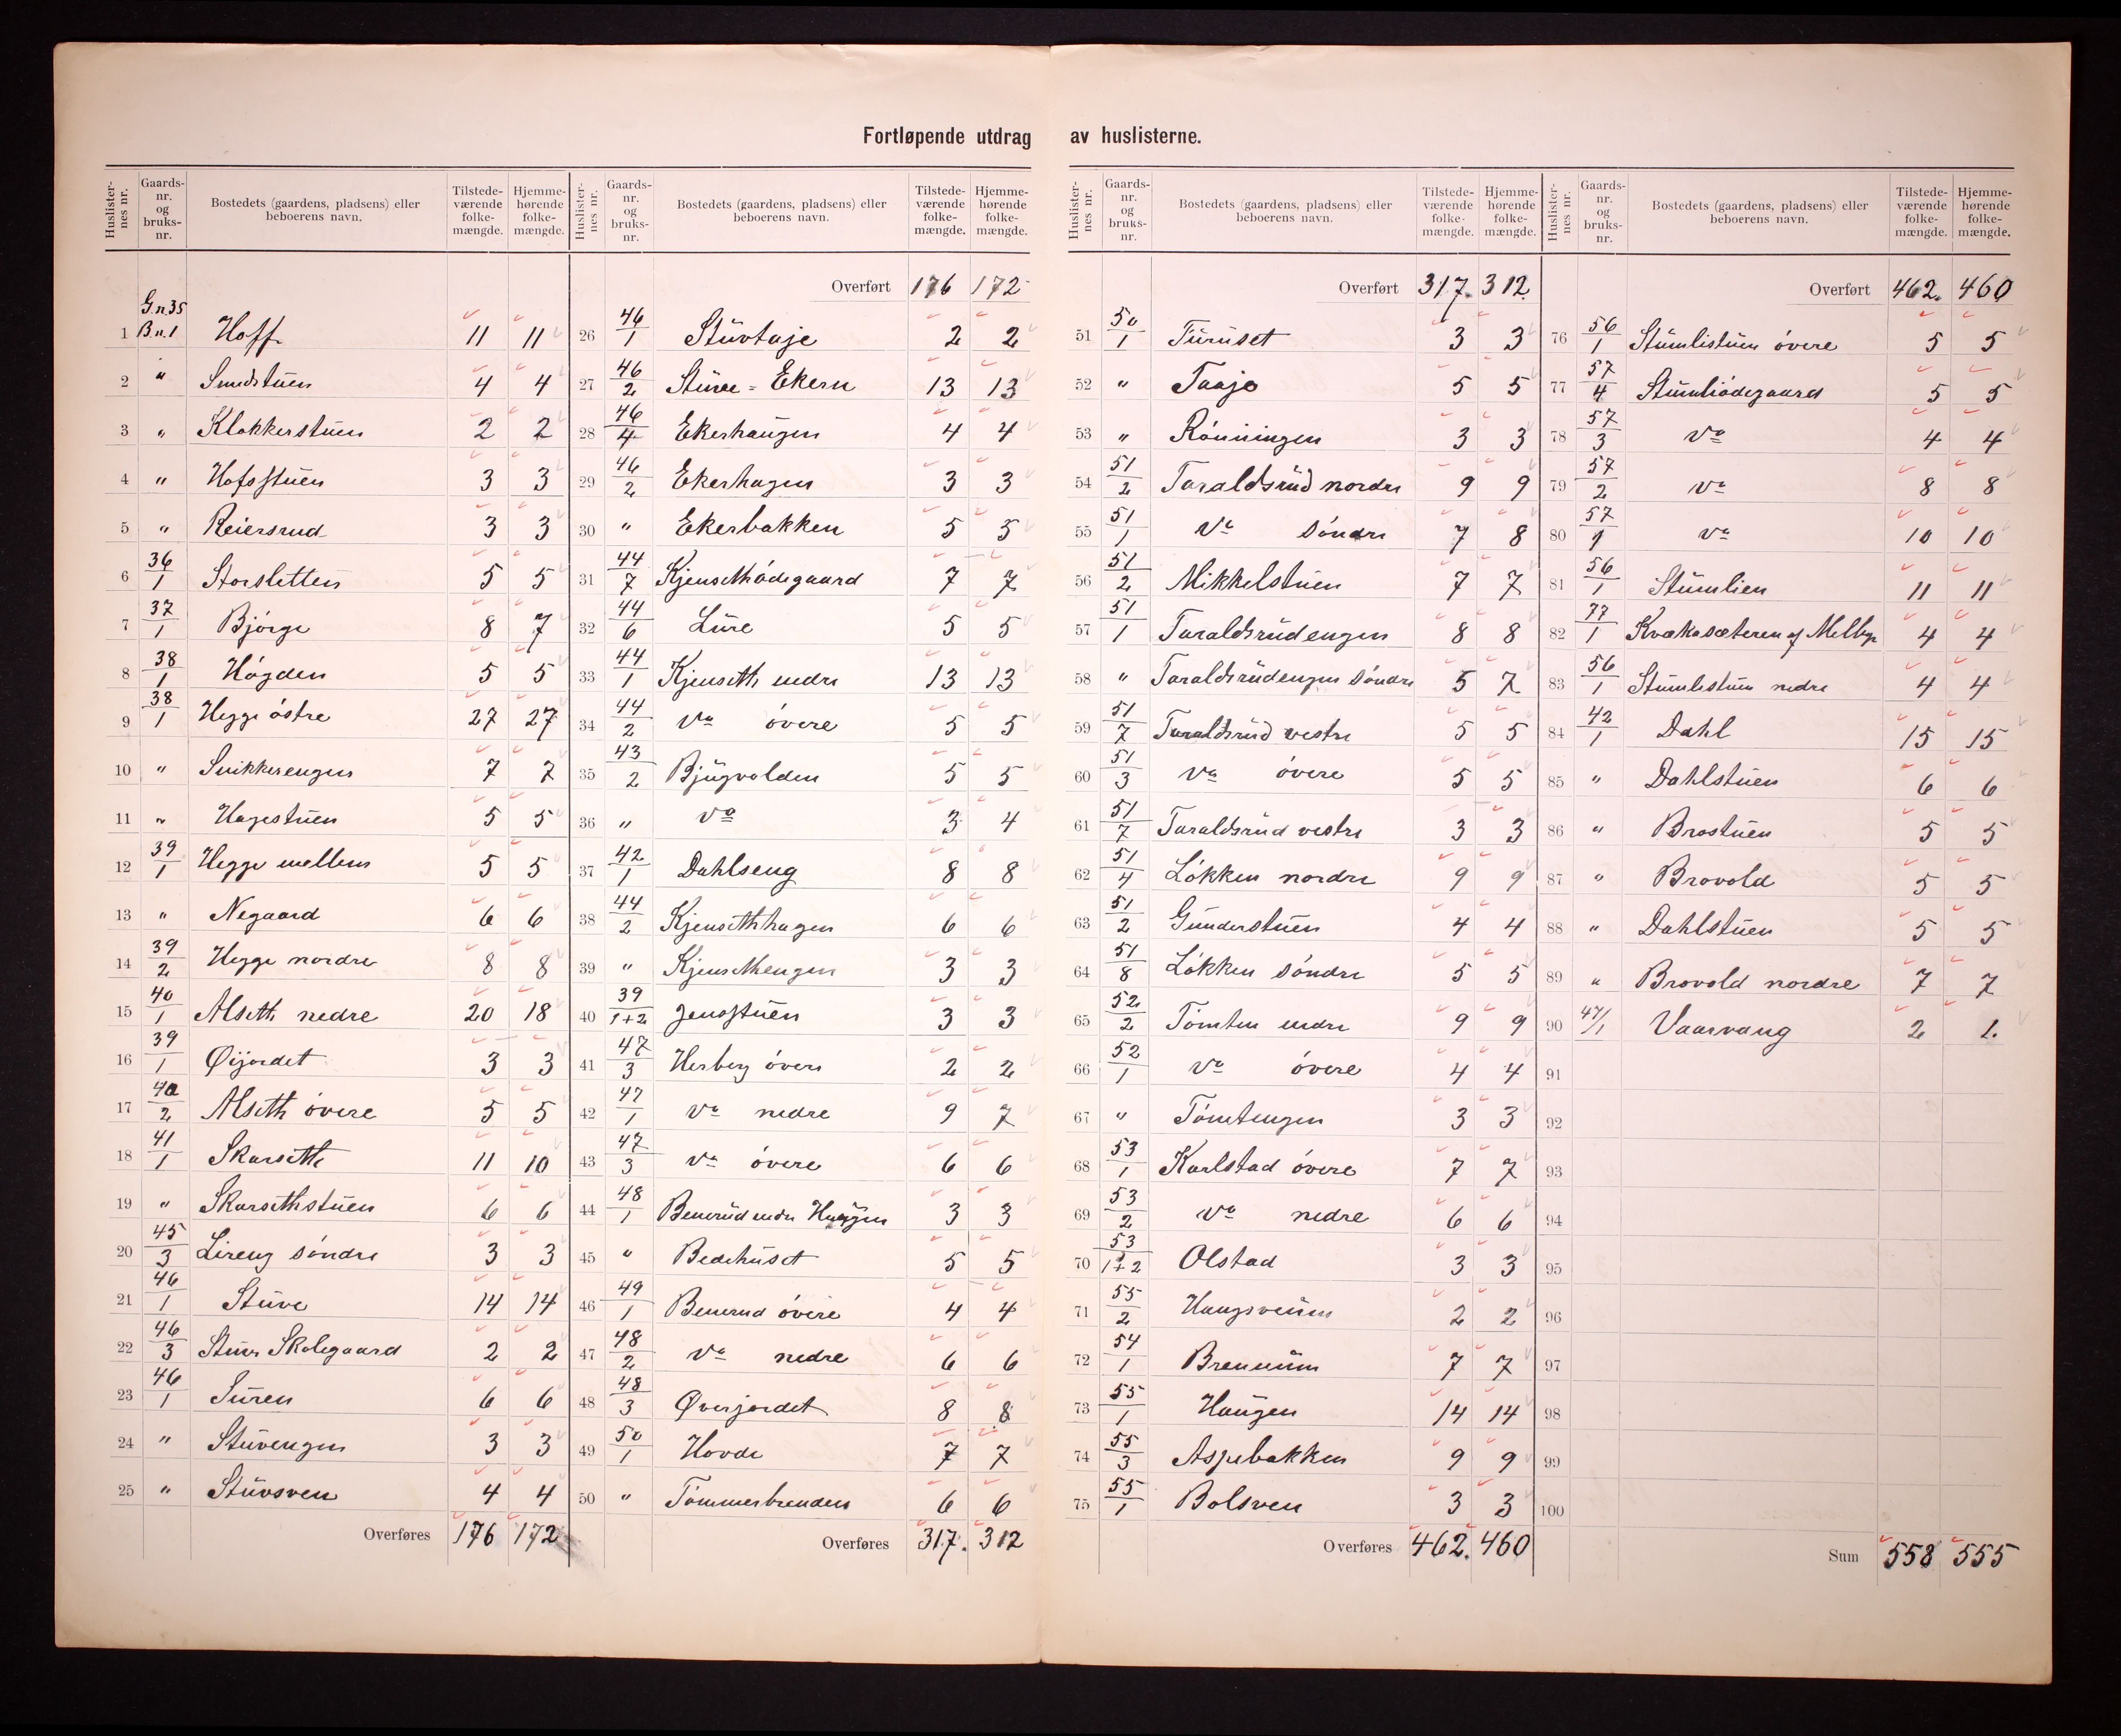 Fortløpende utdrag av huslisterne.
Huslister-nes nr. Gaards-nr. og bruks-nr. Bostedets (gaardens, pladsens) eller beboerens navn. Tilstede-værende folke-mængde. Hjemme-hørende folke-mængde.
1 G.n 35 B.n. 1 Hoff 11 11
2 " Sundstuen 4 4
3 " Klokkerstuen 2 2
4 " Hofsstuen 3 3
5 " Reiersrud 3 3
6 36/1 Storsletten 5 5
7 37/1 Bjørge 8 7
8 38/1 Høgden 5 5
9 38/1 Hegge østre 27 27
10 " Snikkerengen 7 7
11 " Hagestuen 5 5
12 39/1 Hegge mellem 5 5
13 " Negaard 6 6
14 39/2 Hegge nordre 8 8
15 40/1 Alseth nedre 20 18
16 39/1 Øijordet 3 3
17 40/2 Alseth øvere 5 5
18 41/1 Skarseth 11 10
19 " Skarsethstuen 6 6
20 45/3 Lireng søndre 3 3
21 46/1 Stuve 14 14
22 46/3 Stuve Skolegaard 2 2
23 46/1 Suren 6 6
24 " Stuvengen 3 3
25 " Stuvsven 4 4
Overføres 176 172
Huslister-nes nr. Gaards-nr. og bruks-nr. Bostedets (gaardens, pladsens) eller beboerens navn. Tilstede-værende folke-mængde. Hjemme-hørende folke-mængde.
Overført 176 172
26 46/1 Stuvtaje 2 2
27 46/2 Stuve-Ekern 13 13
28 46/4 Ekerhaugen 4 4
29 46/2 Ekerhagen 3 3
30 " Ekerbakken 5 5
31 44/7 Kjensethødegaard 7 7
32 44/6 Lure 5 5
33 44/1 Kjenseth nedre 13 13
34 44/2 do øvere 5 5
35 43/2 Bjugvolden 5 5
36 " do 3 4
37 42/1 Dahlseng 8 8
38 44/2 Kjensethhagen 6 6
39 " Kjensethengen 3 3
40 39/1+2 Jensstuen 3 3
41 47/3 Herberg øvere 2 2
42 47/1 do nedre 9 7
43 47/3 do øvere 6 6
44 48/1 Benerud nedre Haugen 3 3
45 " Bedehuset 5 5
46 49/1 Benerud øvere 4 4
47 48/2 do nedre 6 6
48 48/3 Øverjordet 8 8
49 50/1 Hovde 7 7
50 " Tømmerbrenden 6 6
Overføres 317. 312
Huslister-nes nr. Gaards-nr. og bruks-nr. Bostedets (gaardens, pladsens) eller beboerens navn. Tilstede-værende folke-mængde. Hjemme-hørende folke-mængde.
Overført 317. 312.
51 50/1 Turuset 3 3
52 " Taajo 5 5
53 " Rønningen 3 3
54 51/2 Taraldsrud nordre 9 9
55 51/1 do søndre 7 8
56 51/2 Mikkelstuen 7 7
57 51/1 Taraldsrudengen 8 8
58 " Taraldsrudengen søndre 5 7
59 51/7 Taraldsrud vestre 5 5
60 51/3 do øvere 5 5
61 51/7 Taraldsrud vestre 3 3
62 51/4 Løkken nordre 9 9
63 51/2 Gunderstuen 4 4
64 51/8 Løkken søndre 5 5
65 52/2 Tømten nedre 9 9
66 52/1 do øvere 4 4
67 " Tømtengen 3 3
68 53/1 Karlstad øvere 7 7
69 53/2 do nedre 6 6
70 53/1+2 Olstad 3 3
71 55/2 Haugsveum 2 2
72 54/1 Brennum 7 7
73 55/1 Haugen 14 14
74 55/3 Aspebakken 9 9
75 55/1 Bolsven 3 3
Overføres 462. 460
Huslister-nes nr. Gaards-nr. og bruks-nr. Bostedets (gaardens, pladsens) eller beboerens navn. Tilstede-værende folke-mængde. Hjemme-hørende folke-mængde.
Overført 462. 460
76 56/1 Stumlistuen øvere 5 5
77 57/4 Stumliødegaard 5 5
78 57/3 do 4 4
79 57/2 do 8 8
80 57/1 do 10 10
81 56/1 Stumlien 11 11
82 77/1 Kvækasæteren af Melbye 4 4
83 56/1 Stumlistuen nedre 4 4
84 42/1 Dahl 15 15
85 " Dahlstuen 6 6
86 " Brostuen 5 5
87 " Brovold 5 5
88 " Dahlstuen 5 5
89 " Brovold nordre 7 7
90 47/1 Vaarvang 2 1.
91
92
93
94
95
96
97
98
99
100
Sum 558 555